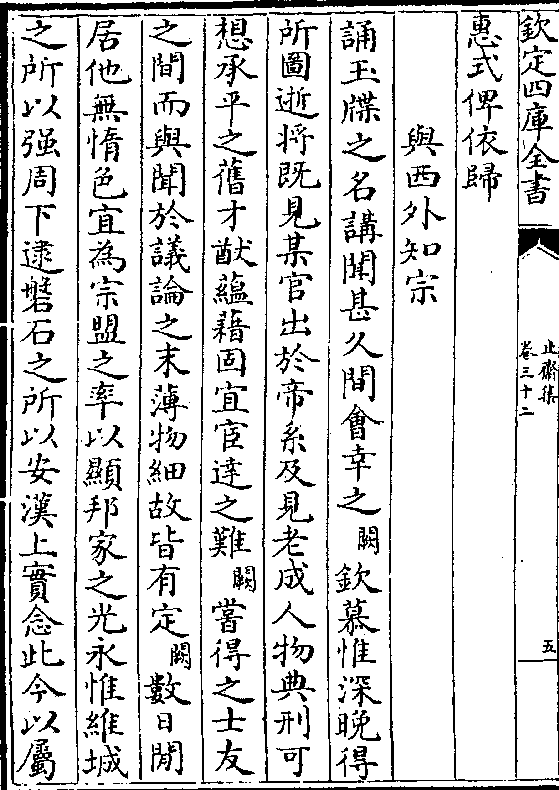 欽定四庫全書
止齋集
卷三十二
五
惠式俾依歸
與西外知宗
誦玉牒之名講聞甚久間會幸之闕欽慕惟深晚得
所圖逝將既見某官出於帝系及見老成人物典刑可
想承平之舊才猷蘊藉固宜宦達之難闕嘗得之士友
之間而與聞於議論之末薄物細故皆有定闕數日閒
居他無惰色宜為宗盟之率以顯邦家之光永惟維城
之所以强周下逮磐石之所以安漢上實念此今以屬